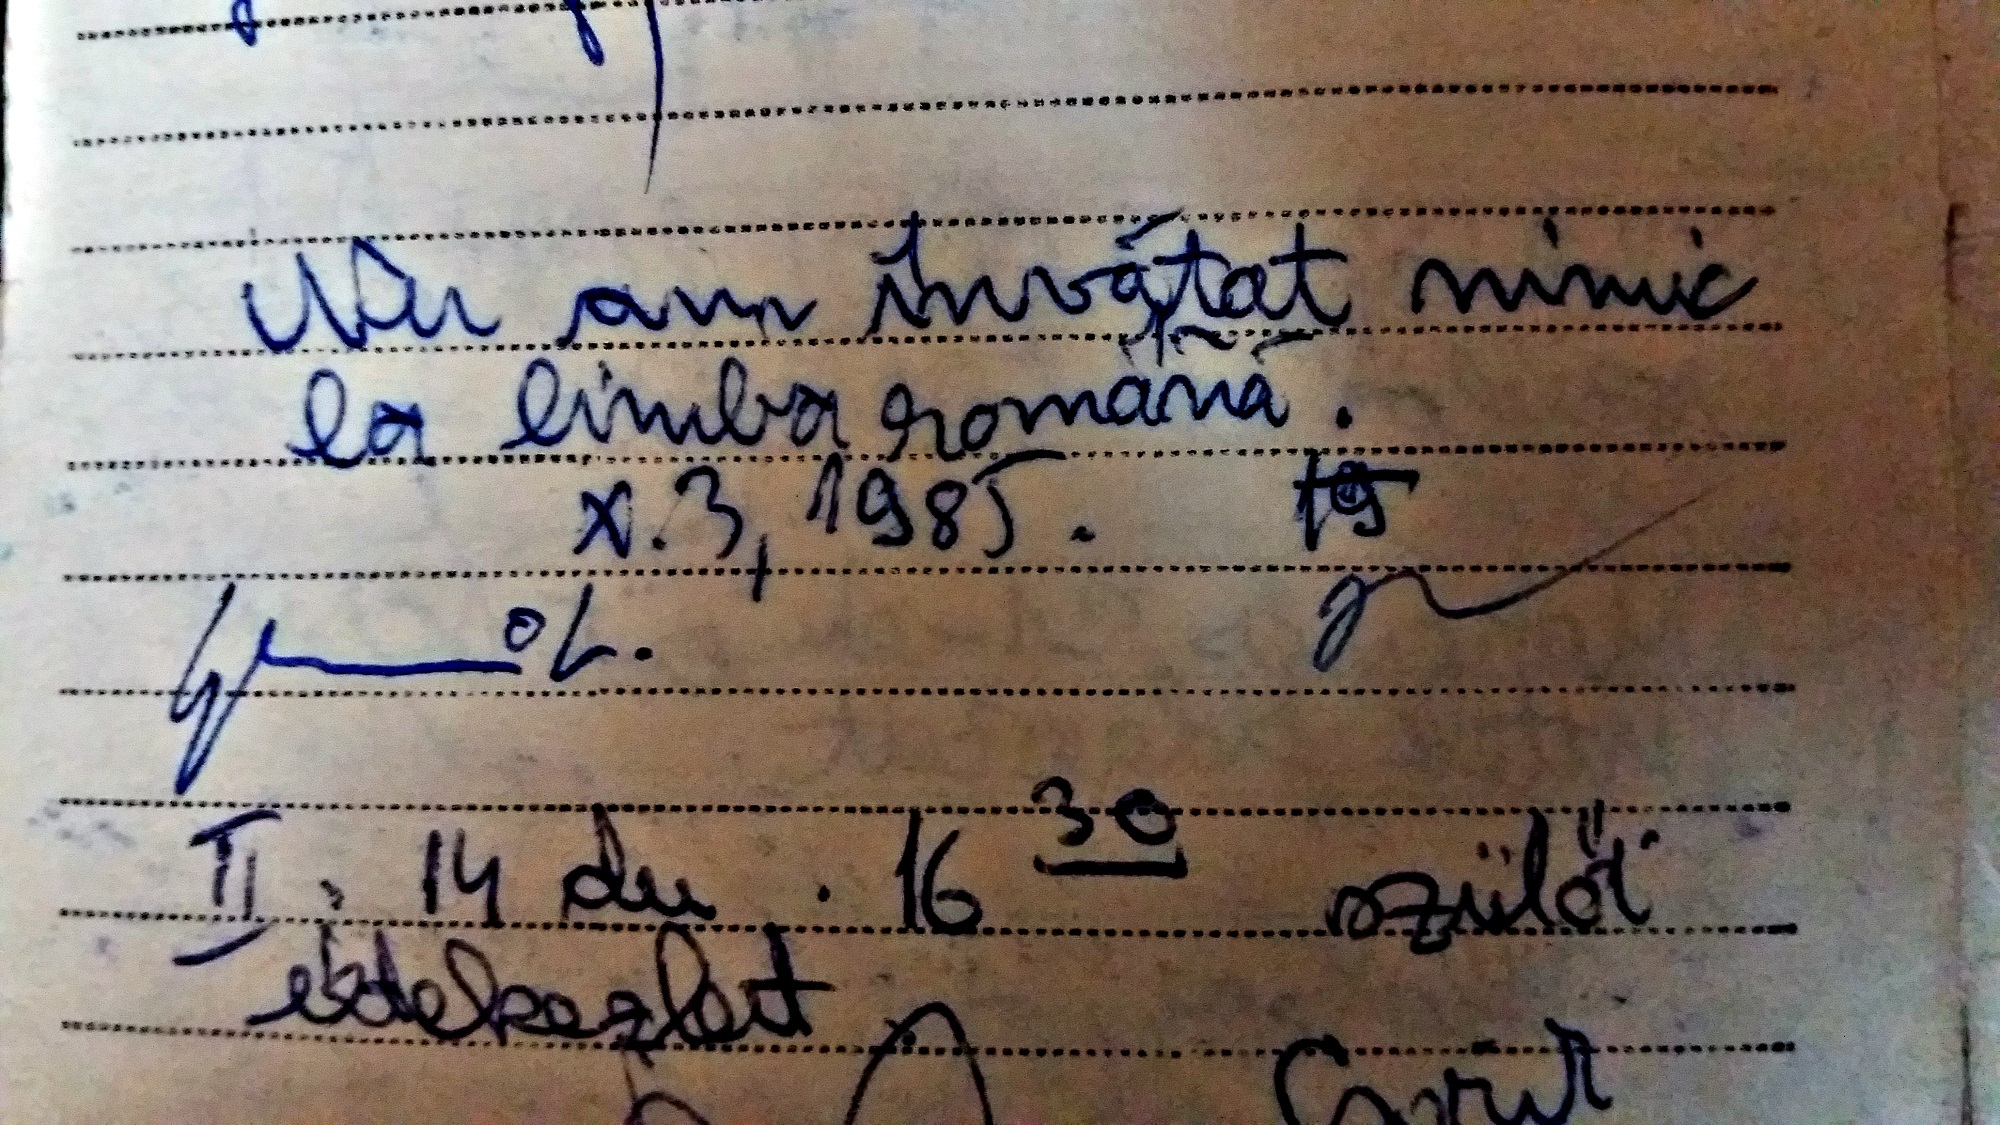 Nu am învățat nimic
la limba română.
X. 3, 1985.
II. 14 du. 16 30 szülői
értekezlet